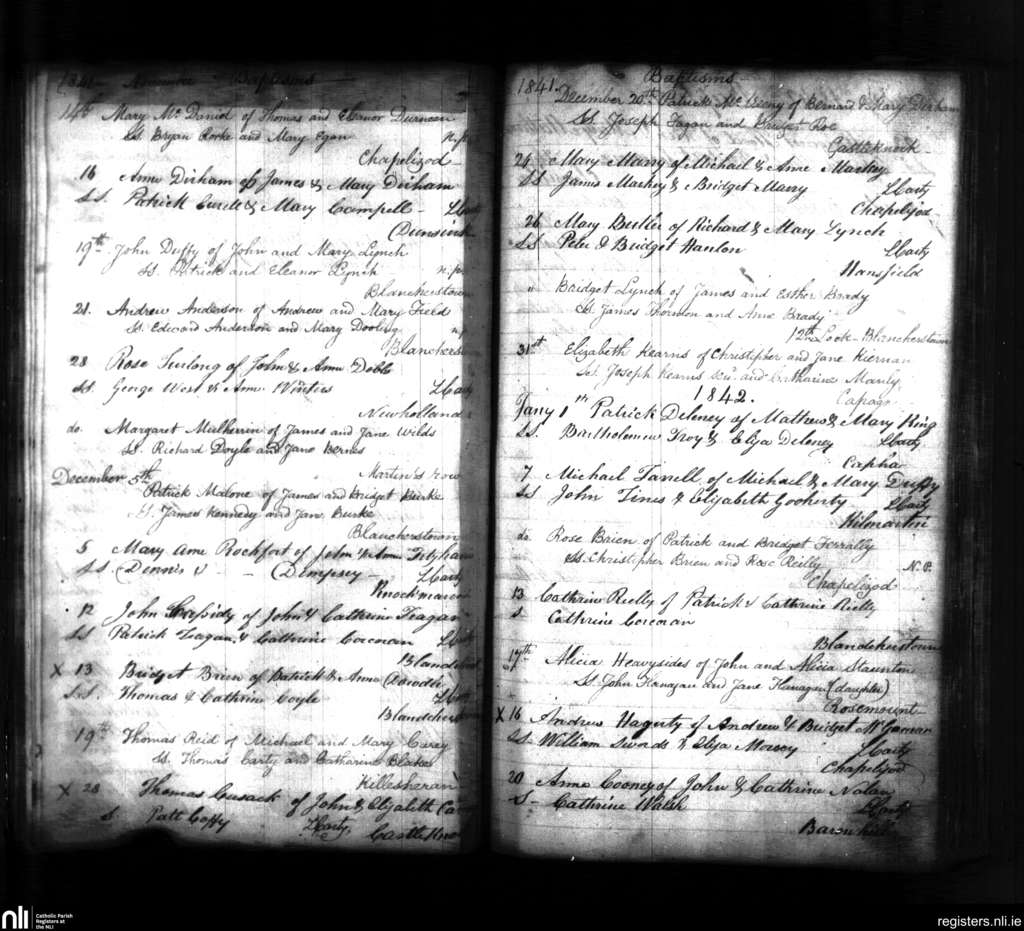 1841 November Baptisms
14th Mary Mc Daniel of Thomas and Eleanor Durneen
Ss. Bryan Rorke and Mary Egan n.p.
Chapelizod
16 Anne Dirham of James & Mary Dirham
S.s. Patrick & Mary Campell - H Carty
Dunsink
19th John Duffy of John and Mary Lynch
Ss. Patrick and Eleanor Lynch n.p.
Blancherstown
21. Andrew Anderson of Andrew and Mary Field
Ss. Edward Anderson and Mary Dooling n.p.
Blanchers
28 Rose Furlong of John & Anne Doble
Ss. George West & Anne H Carty
New holland
do. Margaret Mulherin of James and Jane Wilds
Ss. Richard Doyle and Jane Bernes
Martin's row
December 5th
Patrick Malone of James and Bridget Burke
Ss. James Kennedy and Jane Burke
Blancherstown
5 Mary Anne Rochfort of John & Anne
S.S. Dennis & - - Dimpsey - H Carty
Knockmaroon
12 John Cassidy of John & Cathrine Feagan
S.S Patrick Feagan & Cathrine Corcoran H Carty
Blandcher
X 13 Bridget Brien of Patrick & Anne
S.S. Thomas & Cathrin Coyle H Carty
Blandcherstown
19th Thomas Reid of Michael and Mary Carey
Ss. Thomas Carty and Catharine Blake
Killesheran
X 28 Thomas Cusack of John & Elizabeth
S. Patt Coffy H Carty, Castleknock
1841. Baptisms
December 20th Patrick Mc of Bernard & Mary Dirham
Ss. Joseph Fagan and Bridget Roe
Castleknock
24 Mary Marry of Michael & Anne Mackey
SS James Mackey & Bridget Marry H Carty
Chapelizod
26 Mary Butler of Richard & Mary Lynch
S.S Peter & Bridget Hanlon H Carty
Hansfield
" Bridget Lynch of James and Esther Brady
Ss. James Thornton and Anne Brady
12th Lock - Blancherstown
31st Elizabeth Kearns of Christipher and Jane Kiernan
Ss. Joseph Kearns and Catharine Manly.
1842. Capagh
Jany 1st Patrick Deleney of Mathew & Mary King
Ss. Bartholomew Troy & Eliza Deleney H Carty
Capha
7 Michael Farrell of Michael & Mary Duffy
S.s John Tines & Elizabeth Gooherty H Carty
Kilmartin
do Rose Brien of Patrick and Bridget Ferrally
Ss. Christipher Brien and Rose Reilly N.P.
Chapelizod
13 Cathrin Rielly of Patrick & Cathrine Rielly
S. Cathrine Corcoran
Blandcherstown
17th Alicia Heavysides of John and Alicia Staunton
Ss. John Flanagan and Jane Flanagan (daughter)
Rosemount
X 16 Andrew Hagerty of Andrew & Bridget
Ss. William Swords & Eliza H Carty
Chapelizod
20 Anne Cooney of John & Cathrine Nolan
S - Cathrine Walsh H Carty
nli Catholic Parish Registers at the NLI
registers.nli.ie